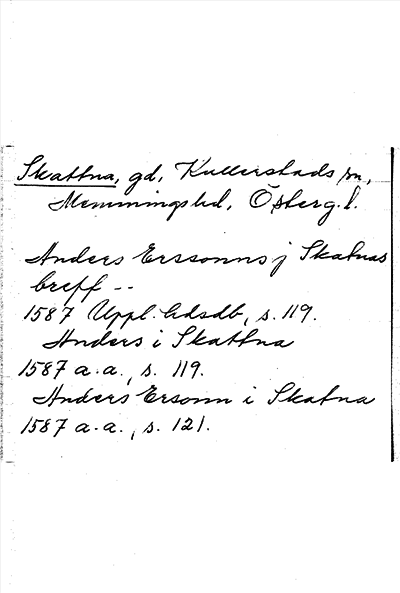 Skattna, gd, Kullerstads sn,
Memmings hd, Österg.l.
Anders Erssonns j Skatnas
breff --
1587 Uppl. ldsdb, s. 119.
Anders i Skattna
1587 a.a., s. 119.
Anders Ersonn i Skatna
1587 a.a., s. 121.